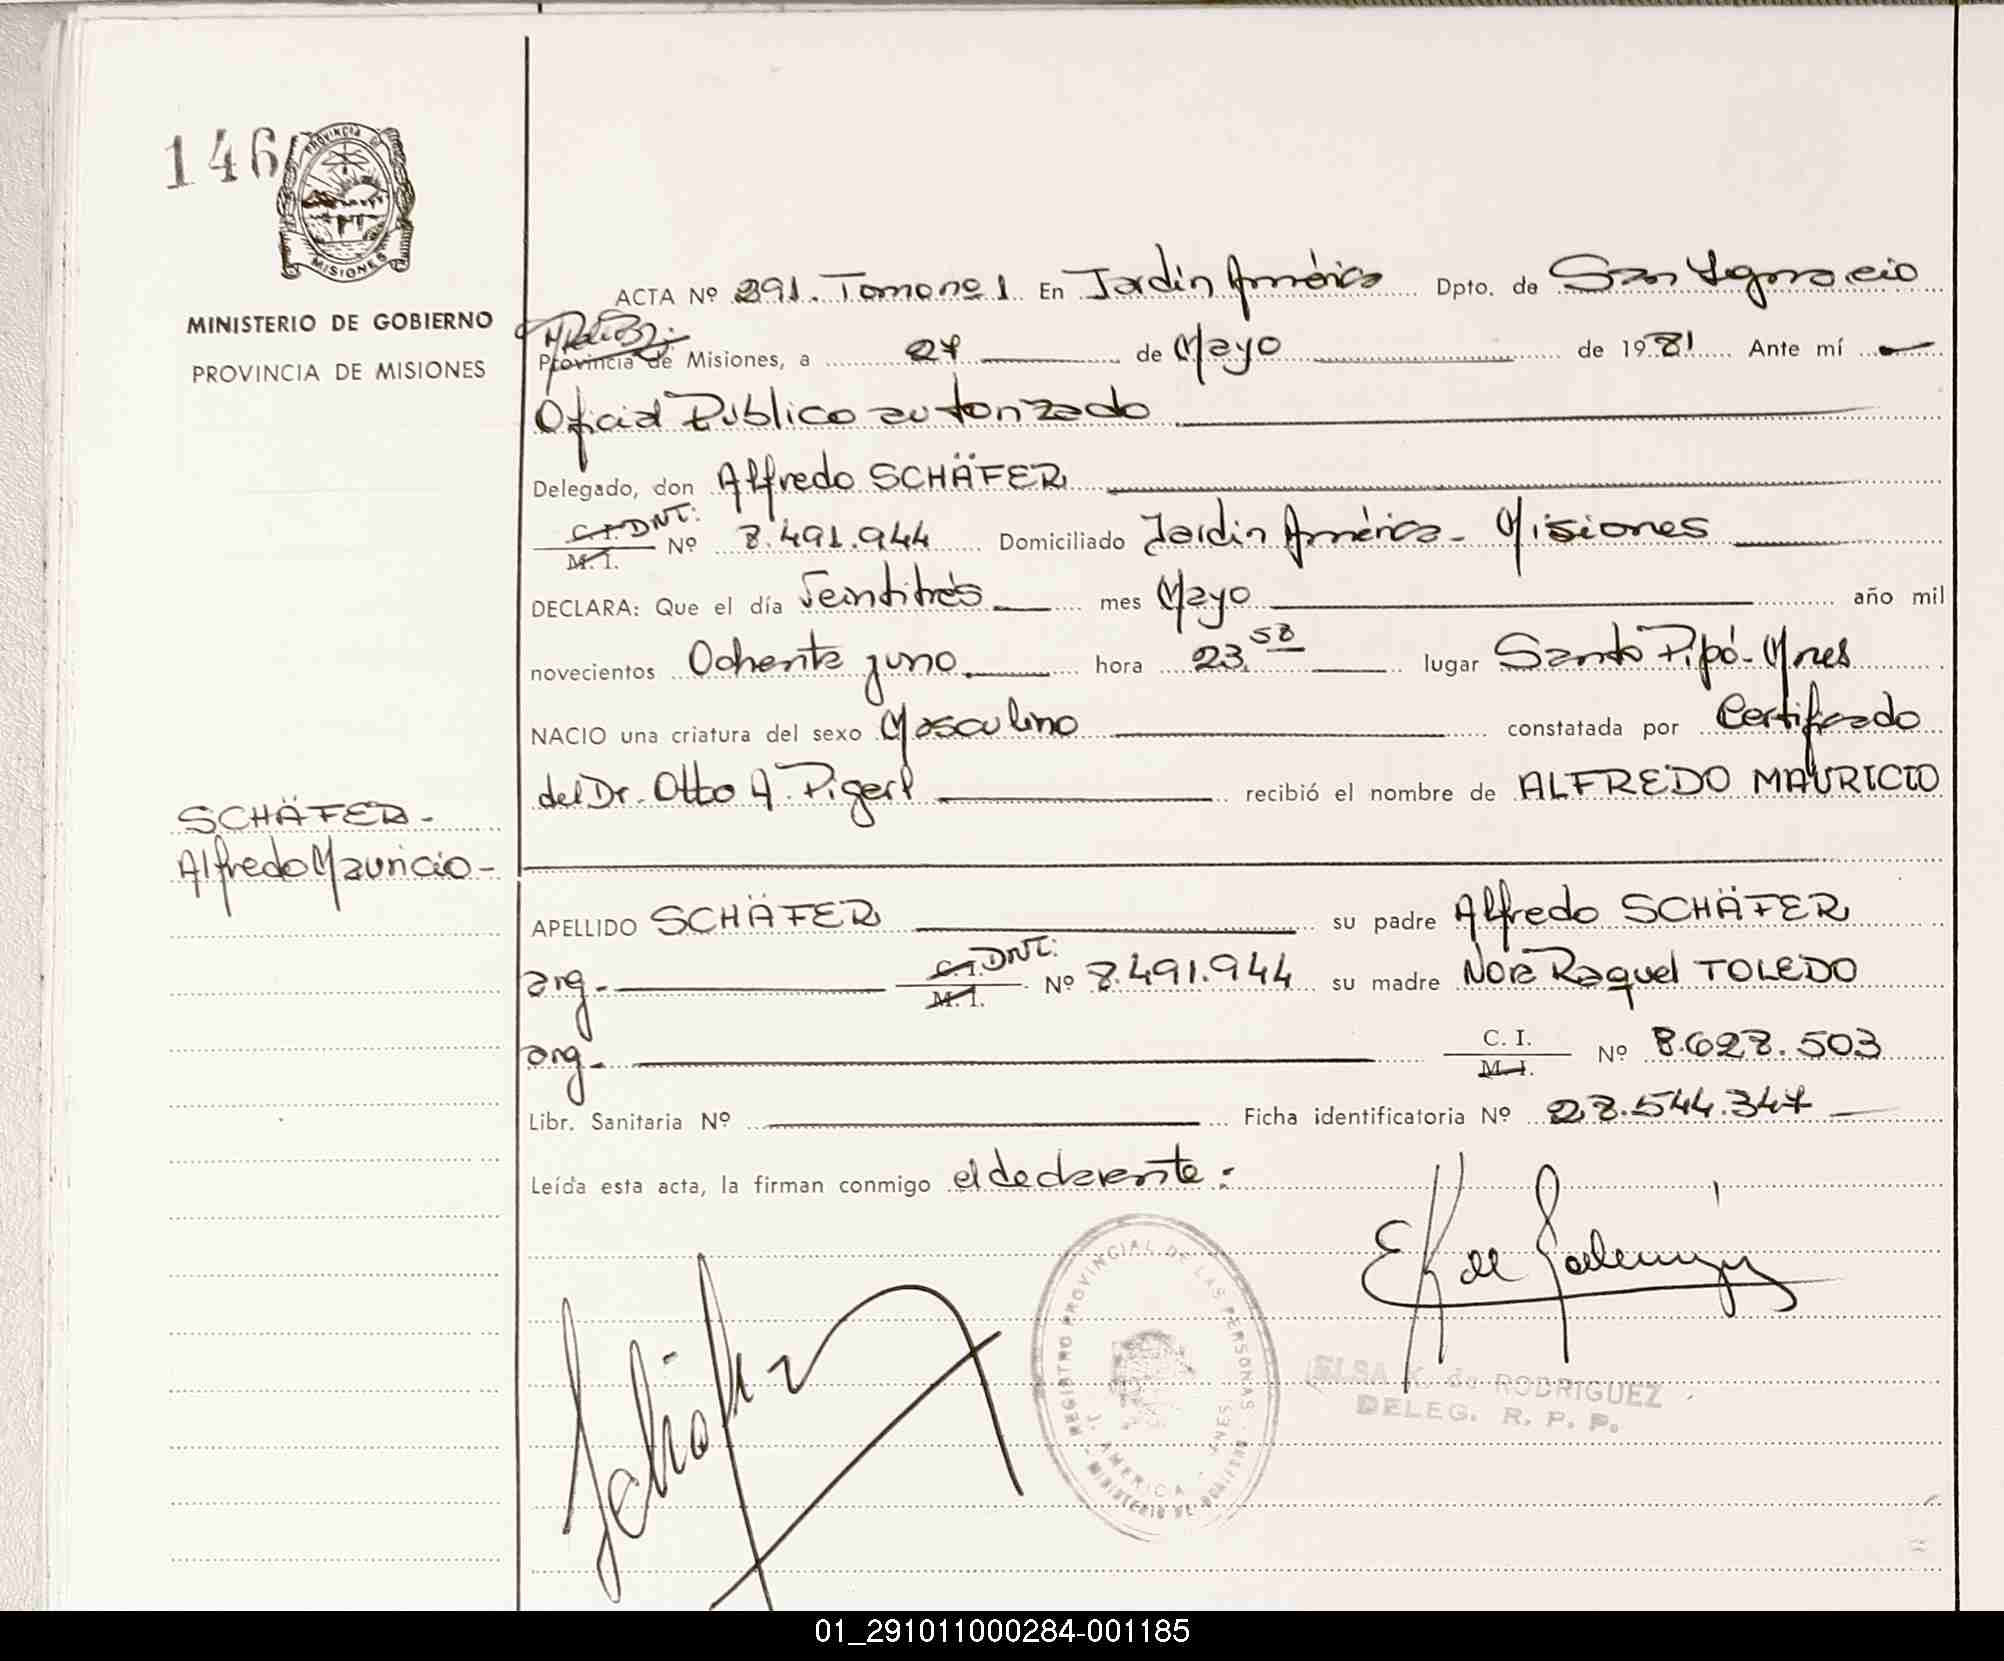 146
PROVINCIA DE
MISIONES
MINISTERIO DE GOBIERNO
PROVINCIA DE MISIONES
ACTA Nº 291. Tomo nº 1 En Jardín América Dpto. de San Ygnacio
Provincia de Misiones, a 27 de Mayo de 1981 Ante mí
Oficial Público autorizado
Delegado, don Alfredo SCHÄFER
C.I. DNI: M. I. Nº 8.491.944 Domiciliado Jardín América - Misiones
DECLARA: Que el día Veintitrés mes Mayo año mil
novecientos Ochenta y uno hora 23,58 lugar Santo Pipó - Mnes
NACIO una criatura del sexo Masculino constatada por Certificado
del Dr. Otto A. Pigerl recibió el nombre de ALFREDO MAURICIO
SCHÄFER -
Alfredo Mauricio -
APELLIDO SCHÄFER su padre Alfredo SCHÄFER
arg - C.I. DNI: M. I. Nº 8.491.944 su madre Nora Raquel TOLEDO
arg - C. I. M. I. Nº 8.628.503
Libr. Sanitaria Nº Ficha identificatoria Nº 28.544.347
Leída esta acta, la firman conmigo el declarante:
REGISTRO PROVINCIAL DE LAS PERSONAS
J. AMERICA - MNES.
MINISTERIO DE
ELSA K. de RODRIGUEZ
DELEG. R. P. P.
01_291011000284-001185